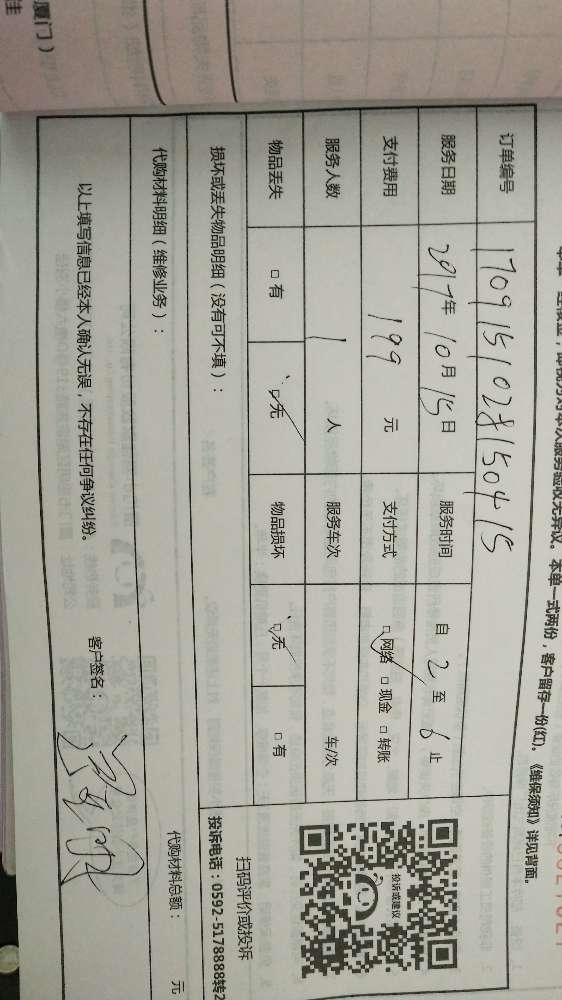 厦门）
佳
单一经收金，即视为对本次服务验收无异议。本单一式两份，客户留存一份(红)。《维保须知》详见背面。
订单编号
服务日期 2017年 10月 15日 服务时间 自 2 至 6 止
支付费用 199 元 支付方式 ☑网络 □现金 □转账
服务人数 1 人 服务车次 车/次
物品丢失 □有 ☑无 物品损坏 ☑无 □有
投诉或建议
扫码评价或投诉
投诉电话：0592-5178888转2
损坏或丢失物品明细（没有可不填）：
代购材料明细（维修业务）：
代购材料总额： 元
以上填写信息已经本人确认无误，不存在任何争议纠纷。 客户签名：